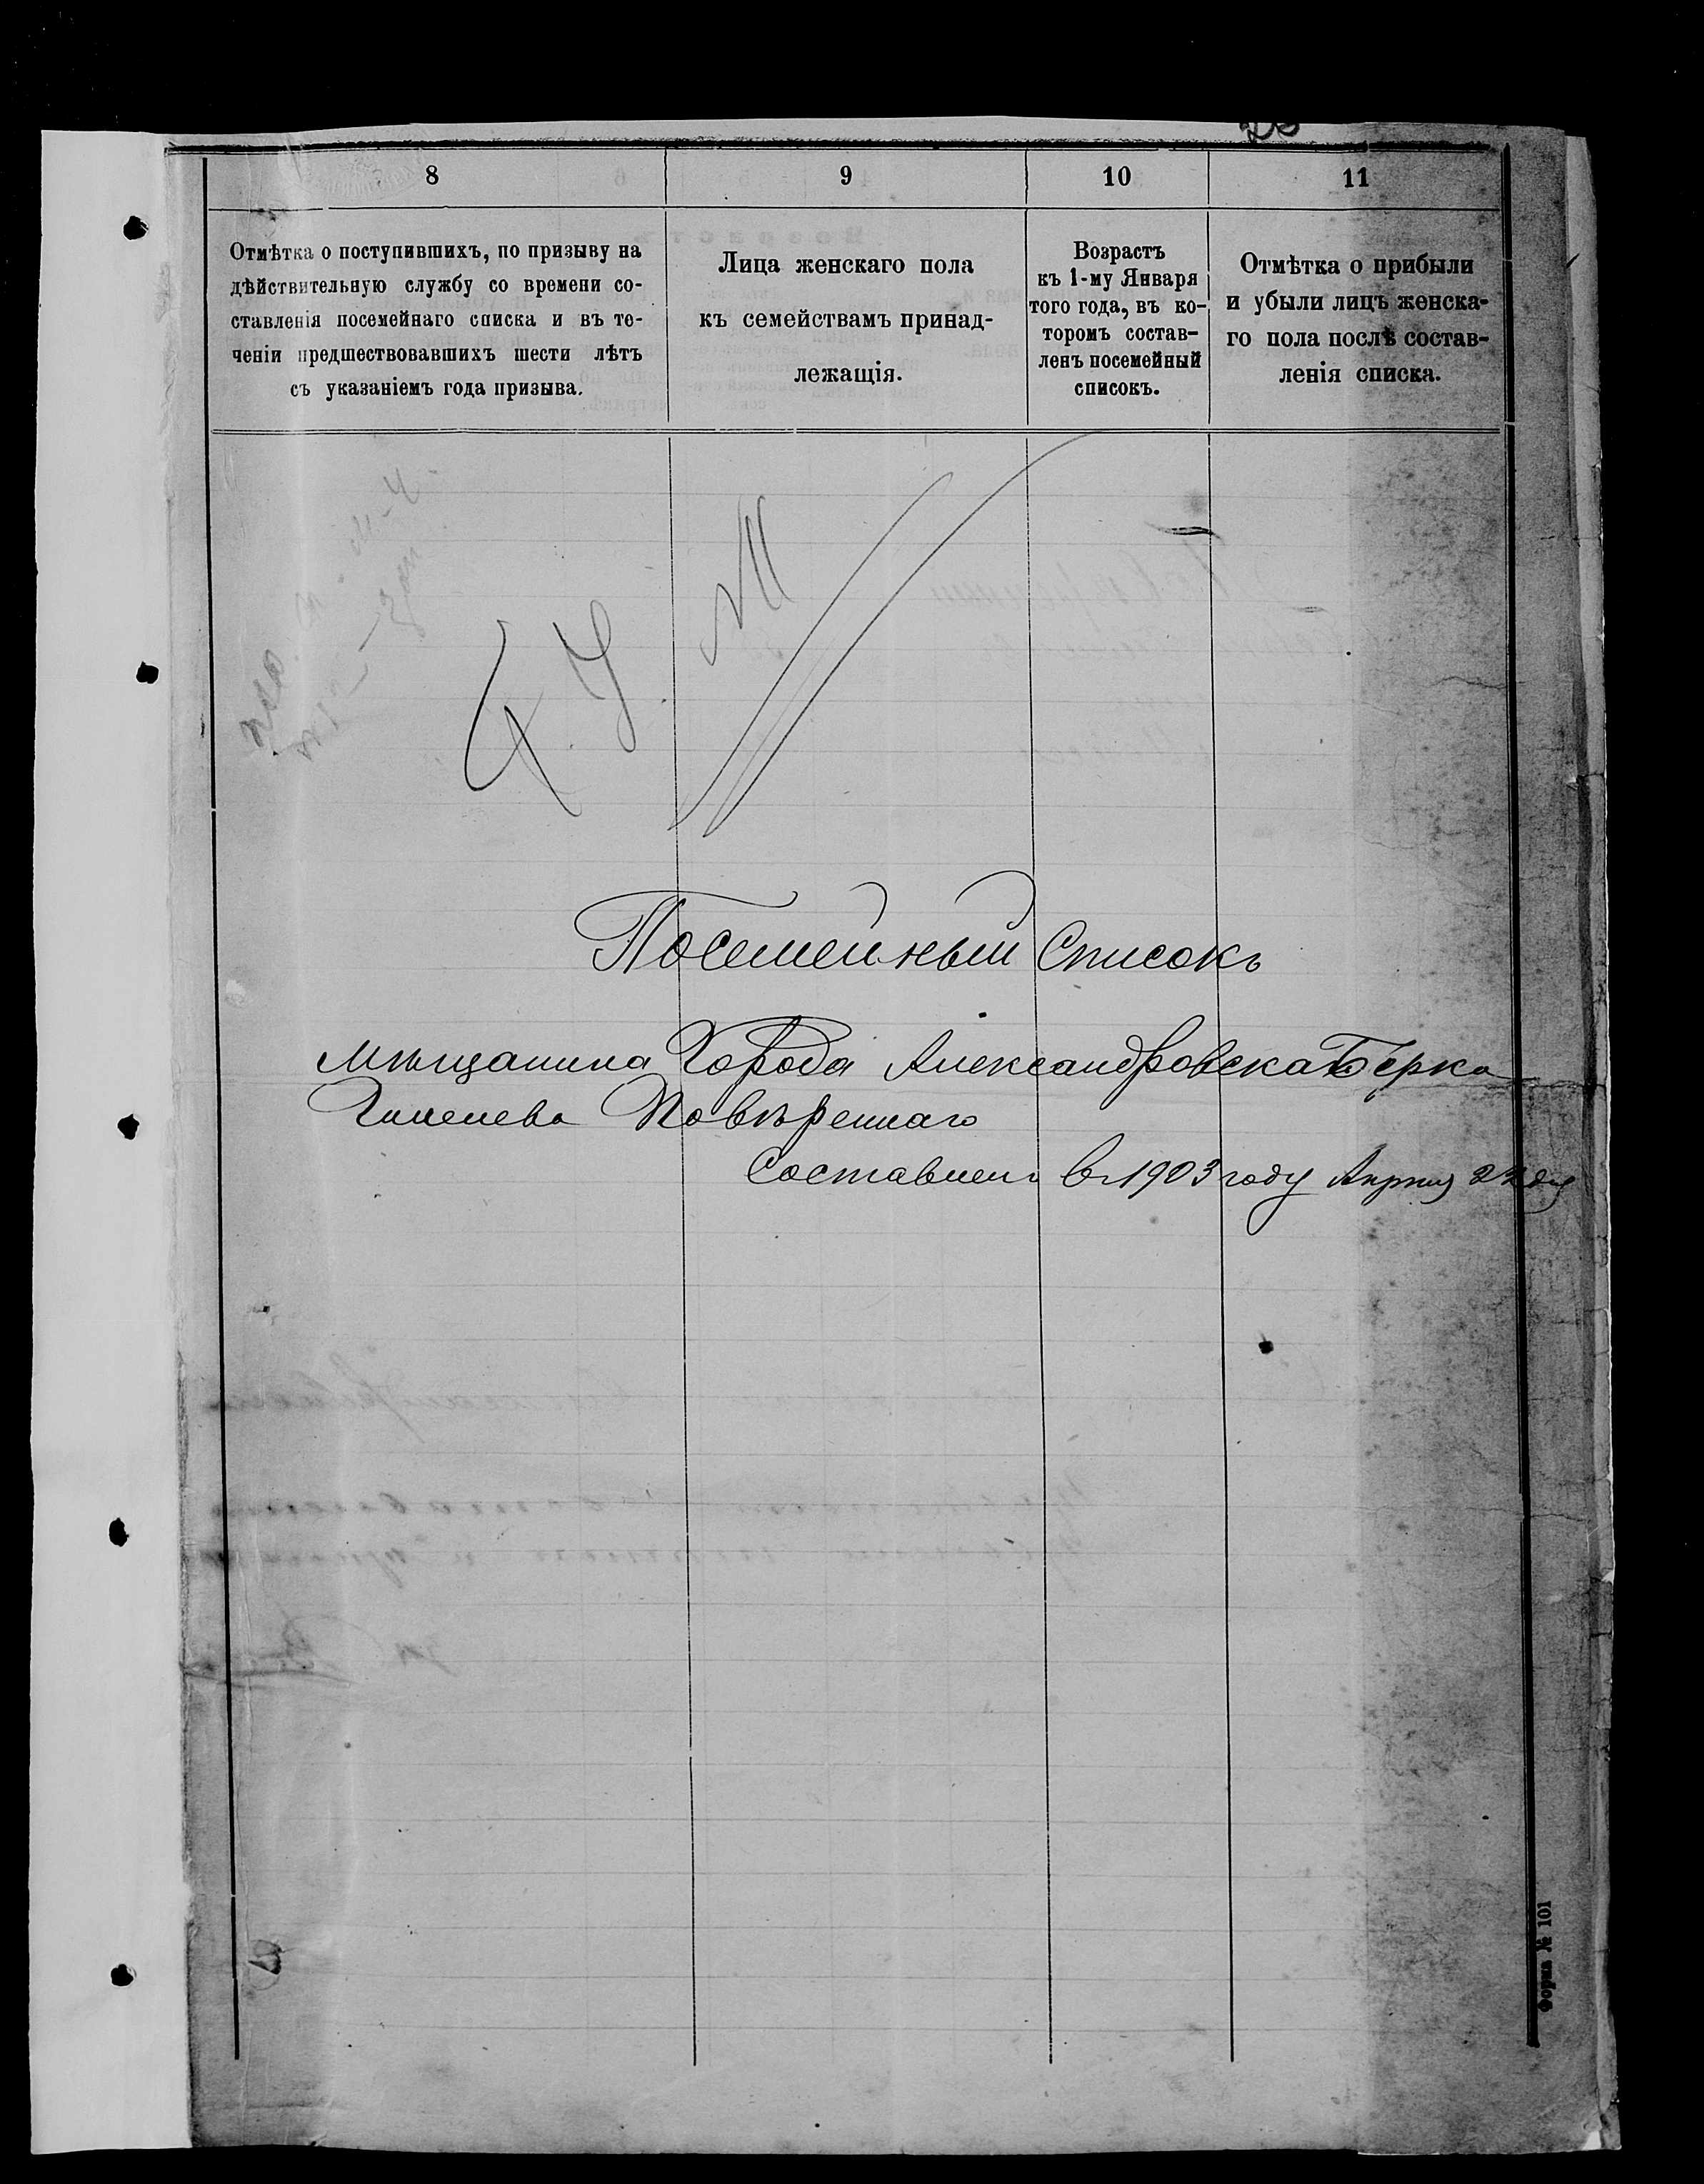 8 9 10 11
Отмѣтка о поступившихъ, по призыву на
дѣйствительную службу со времени со-
ставленія посемейнаго списка и въ те-
ченіи предшествовавшихъ шести лѣтъ
съ указаніемъ года призыва.
Лица женскаго пола
къ семействамъ принад-
лежащія.
Возрастъ
къ 1-му Января
того года, въ ко-
торомъ состав-
ленъ посемейный
списокъ.
Отмѣтка о прибыли
и убыли лицъ женска-
го пола послѣ состав-
ленія списка.
Посемейный Списокъ
мѣщанина Города Александровска Берка
Повѣреннаго
Составленъ в 1903 году Апрѣля
Форма № 101